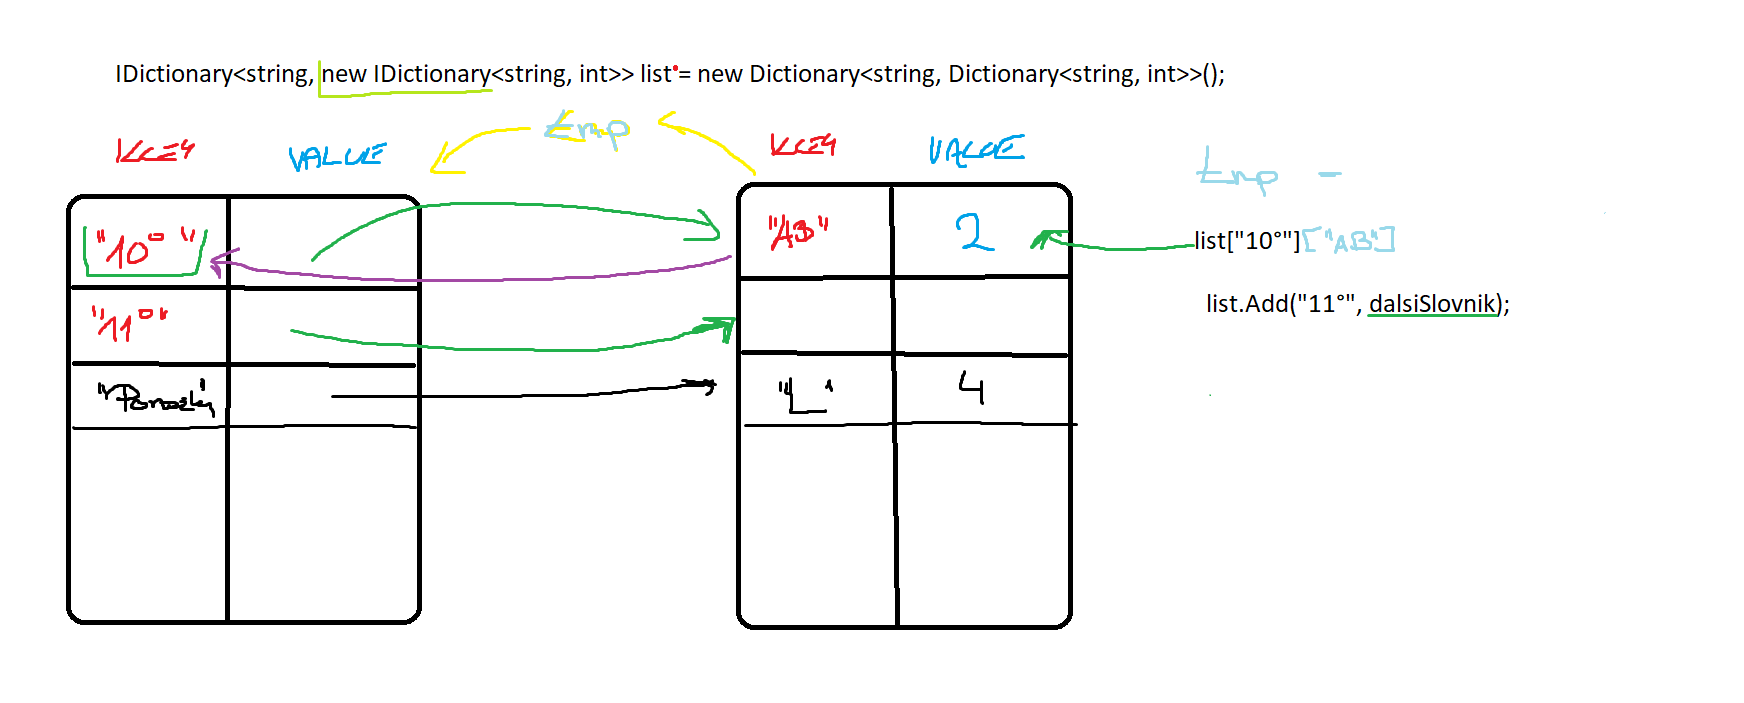 IDictionary<string, new IDictionary<string, int>> list = new Dictionary<string, Dictionary<string, int>>();
tmp
KLÍČ VALUE KLÍČ VALUE
tmp -
"10° " "AB" 2 list["10°"]["AB"]
"11°" list.Add("11°", dalsiSlovnik);
"L" 4